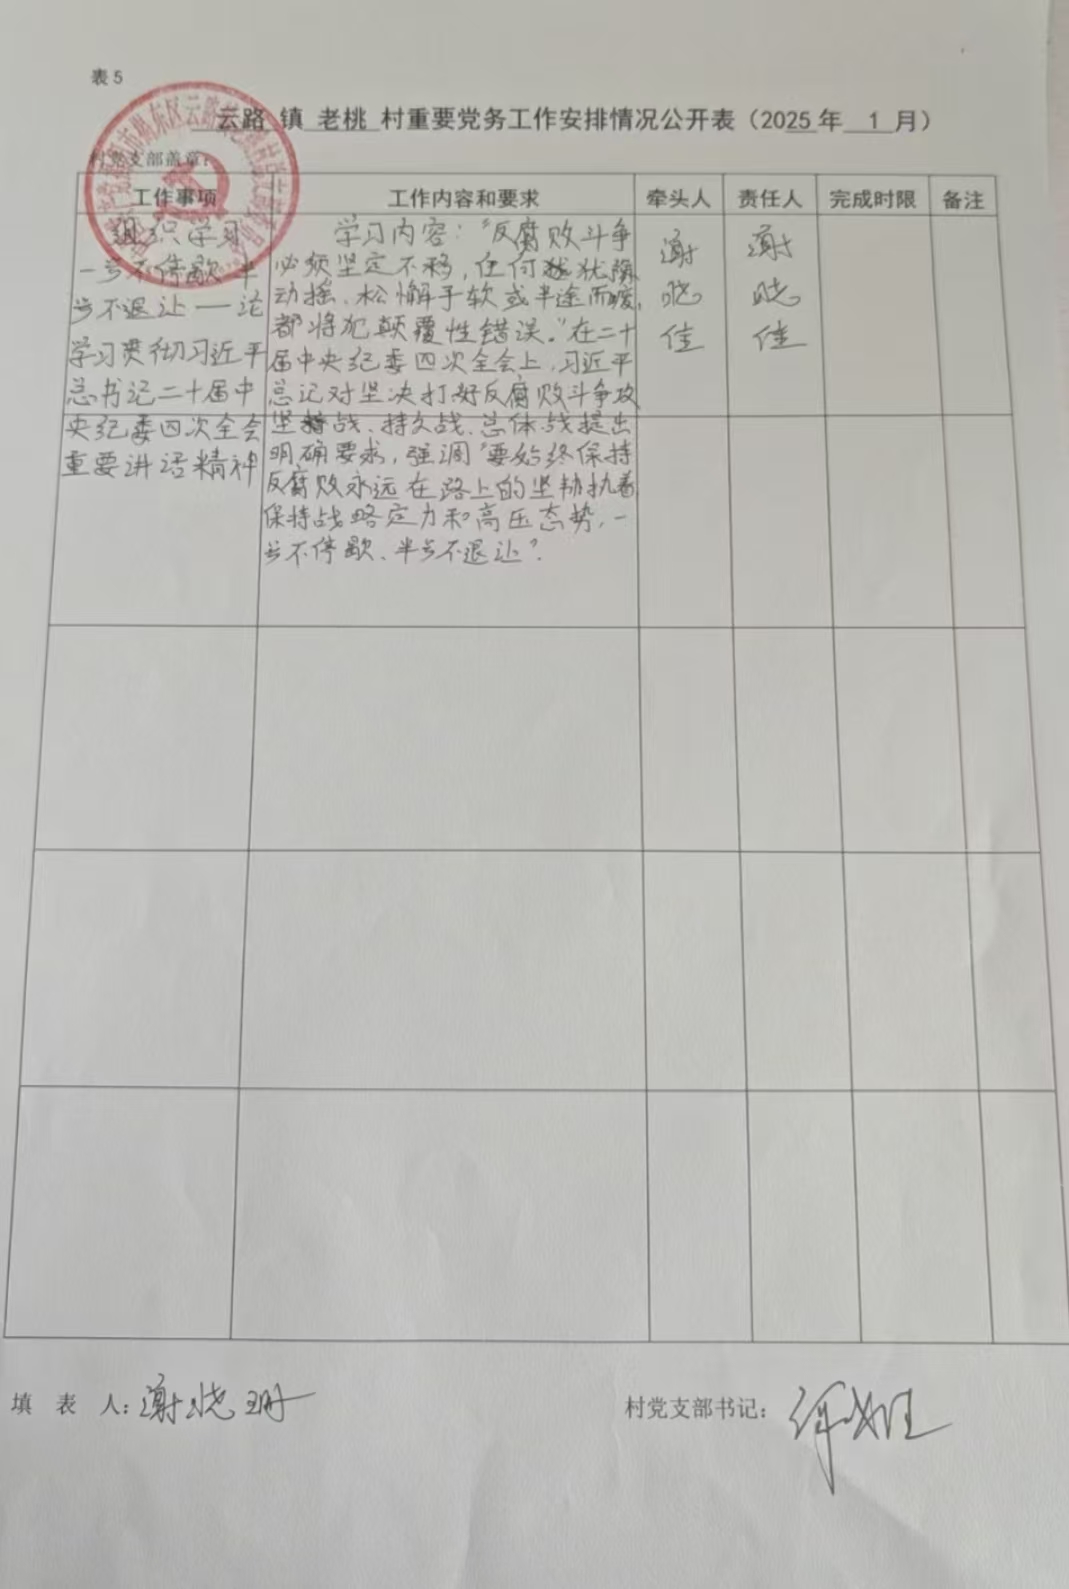 表5
云路 镇 老桃 村重要党务工作安排情况公开表（2025 年 1 月）
村党支部盖章：
工作事项 工作内容和要求 牵头人 责任人 完成时限 备注
组织学习
一步不停歇 半
步不退让——论
学习贯彻习近平
总书记二十届中
央纪委四次全会
重要讲话精神
学习内容："反腐败斗争
必须坚定不移，任何犹犹豫
动摇、松懈手软或半途而废，
都将犯颠覆性错误。"在二十
届中央纪委四次全会上，习近平
总记对坚决打好反腐败斗争攻
坚战、持久战、总体战提出
明确要求，强调"要始终保持
反腐败永远在路上的坚韧执着
保持战略定力和高压态势，一
步不停歇、半步不退让"。
谢
晓
佳
谢
晓
佳
填 表 人：谢晓珊
村党支部书记：